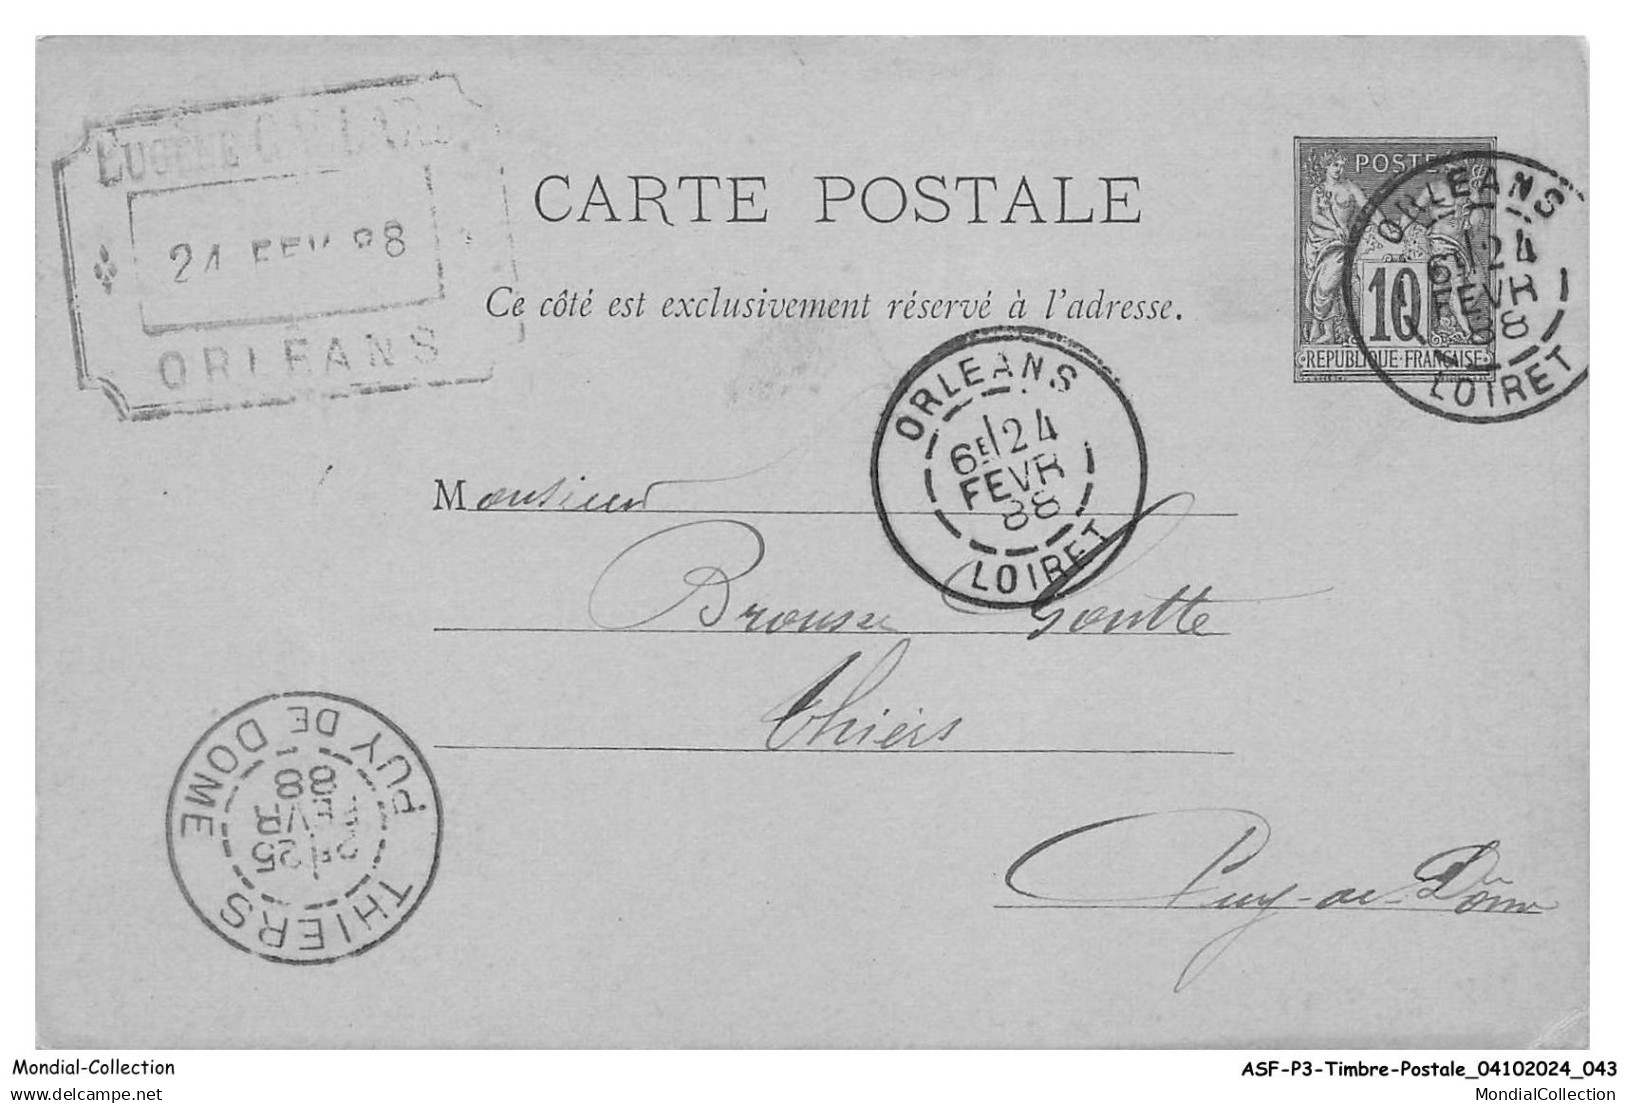 EUGÈNE
24 FEV 88
ORLÉANS
CARTE POSTALE
Ce côté est exclusivement réservé à l'adresse.
POSTES
10
REPUBLIQUE FRANÇAISE
ORLEANS
6E 24
FEVR
88
LOIRET
ORLEANS
6E 24
FEVR
88
LOIRET
Monsieur
Brousse Goutte
Thiers
Puy-de-Dôme
THIERS
25
88
PUY DE DOME
Mondial-Collection
ASF-P3-Timbre-Postale_04102024_043
www.delcampe.net
MondialCollection